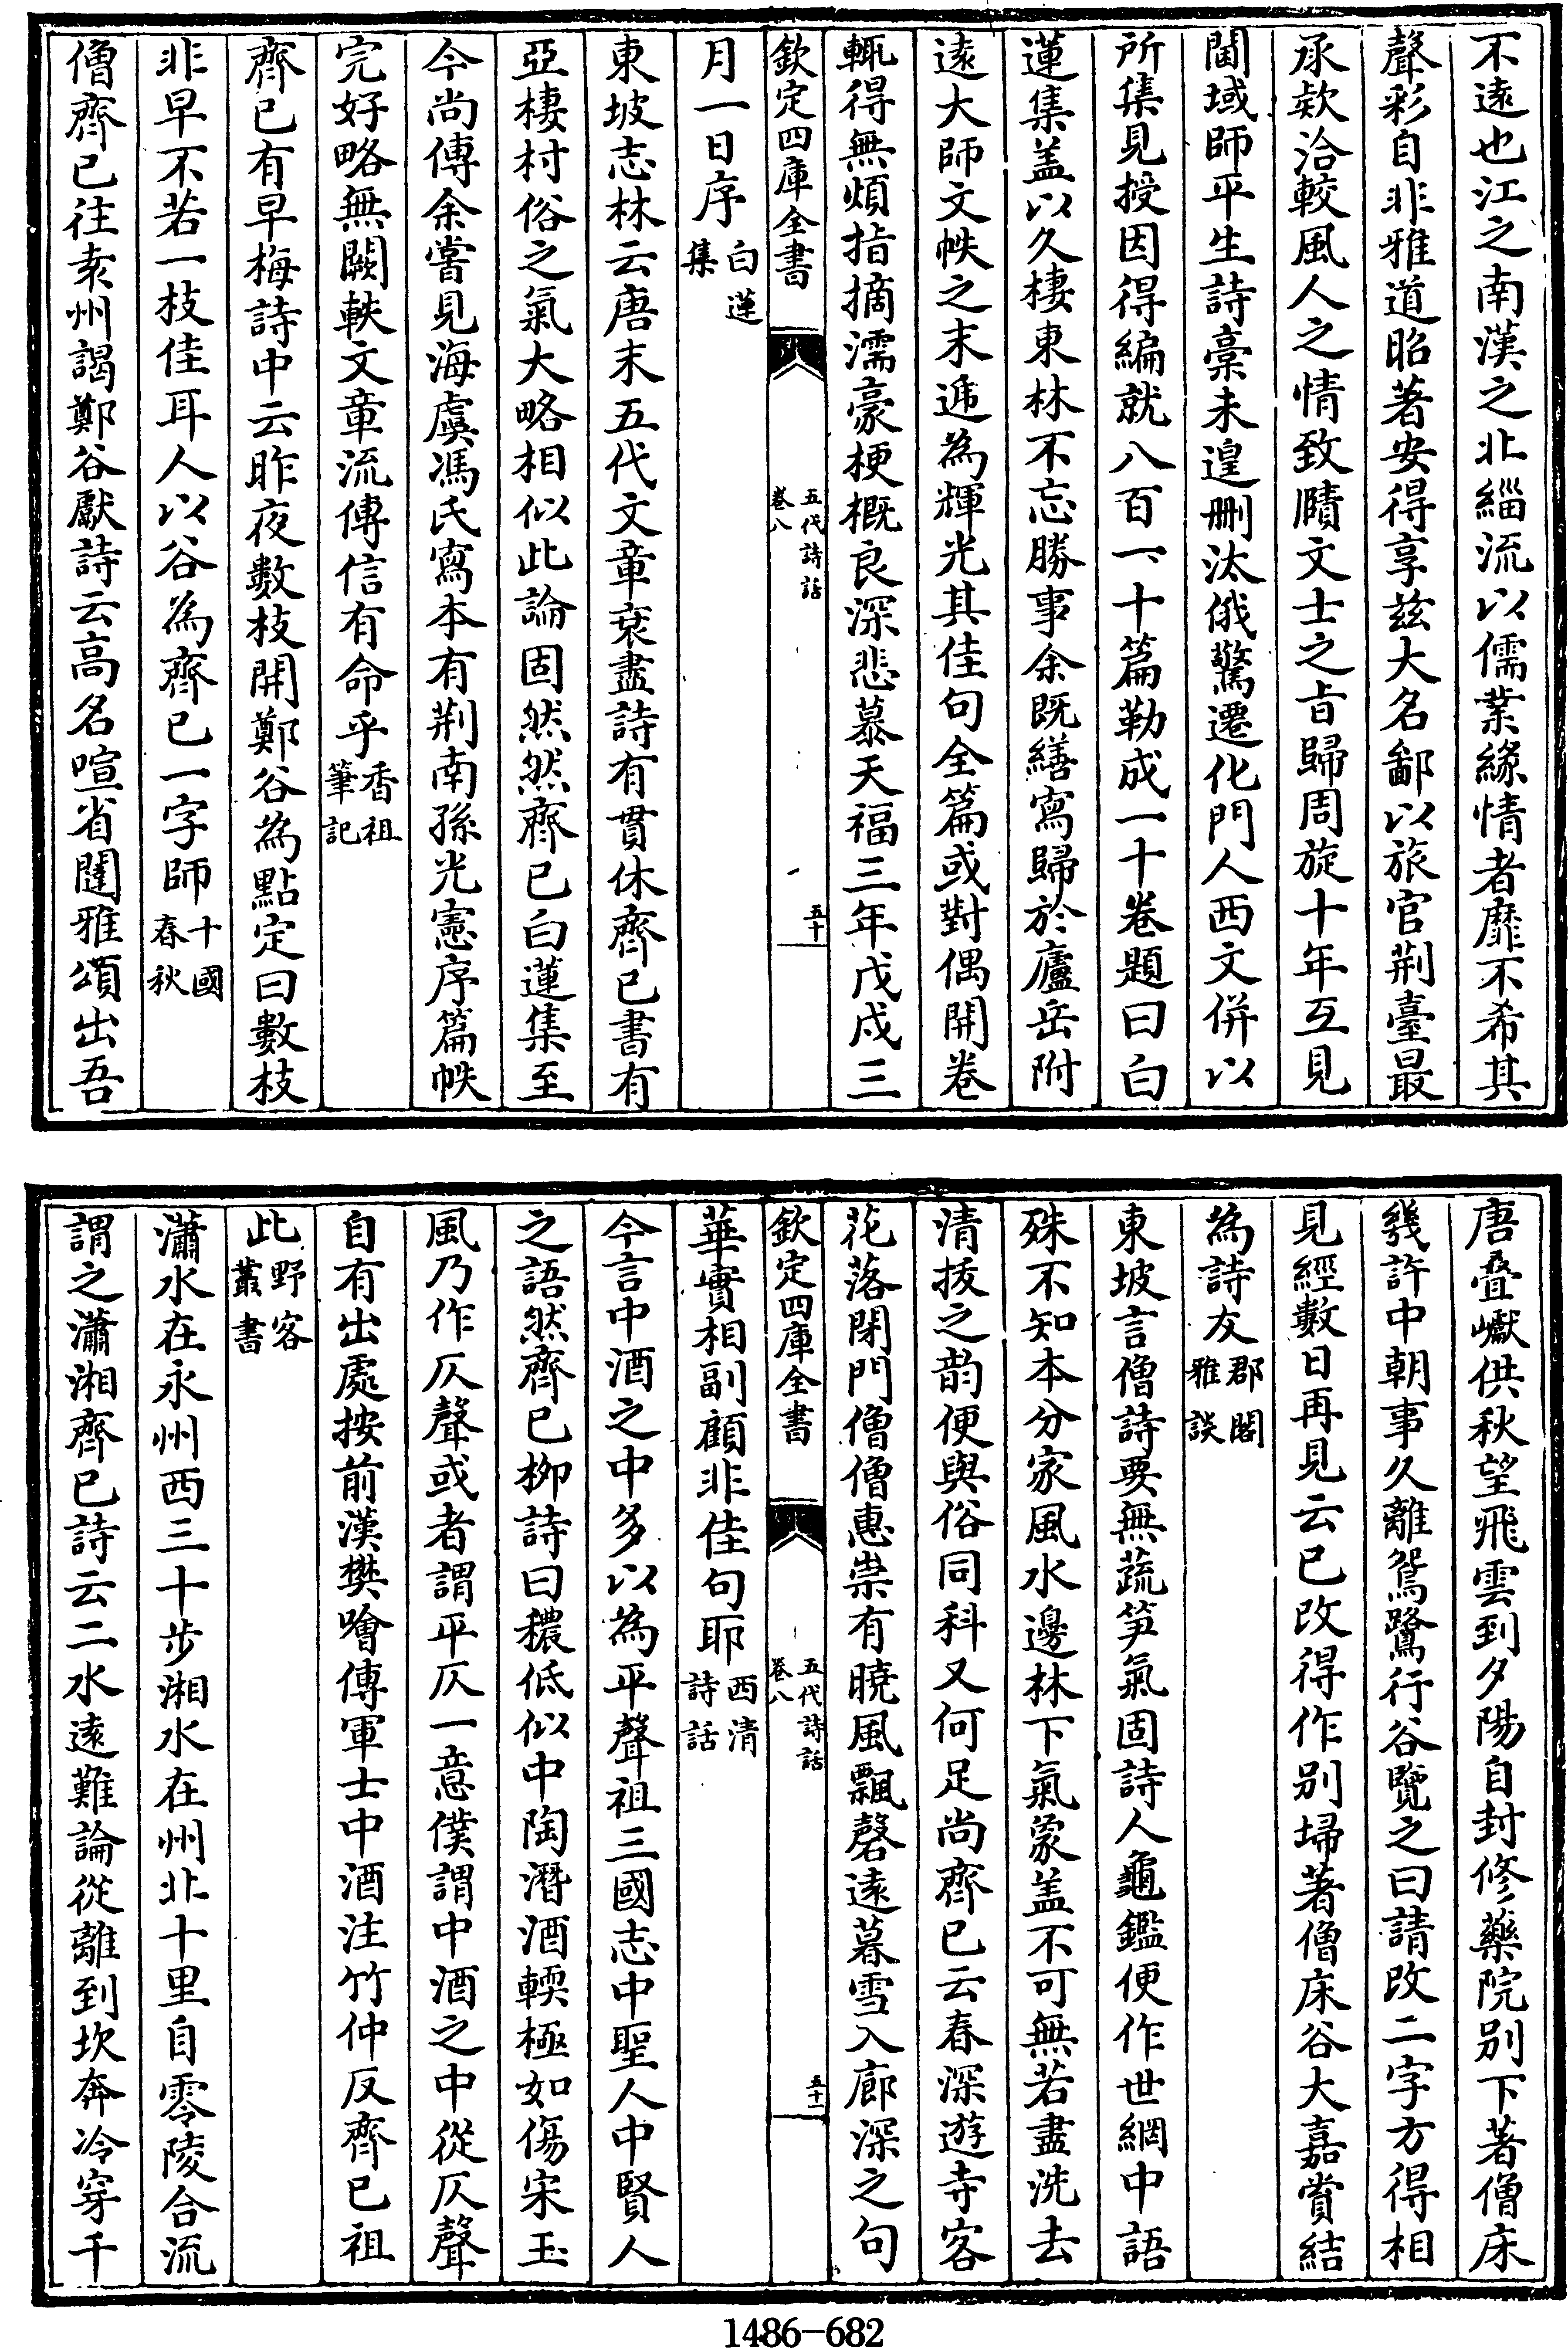 不遠也江之南漢之北緇流以儒業緣情者靡不希其
聲彩自非雅道昭著安得享兹大名鄙以旅官荆臺最
承欵洽較風人之情致賾文士之旨歸周旋十年互見
閫域師平生詩稾未遑删汰俄驚遷化門人西文併以
所集見授因得編就八百一十篇勒成一十卷題曰白
蓮集盖以久棲東林不忘勝事余既繕寫歸於廬岳附
遠大師文帙之末逓為輝光其佳句全篇或對偶開卷
輒得無煩指摘濡豪梗概良深悲慕天福三年戊戌三
欽定四庫全書
五代詩話
卷八
五十
月一日序白蓮
集
東坡志林云唐末五代文章衰盡詩有貫休齊已書有
亞棲村俗之氣大略相似此論固然然齊已白蓮集至
今尚傳余嘗見海虞馮氏寫本有荆南孫光憲序篇帙
完好略無闕軼文章流傳信有命乎香祖
筆記
齊已有早梅詩中云昨夜數枝開鄭谷為點定曰數枝
非早不若一枝佳耳人以谷為齊已一字師十國
春秋
僧齊已往袁州謁鄭谷獻詩云高名喧省闥雅頌出吾
唐疊巘供秋望飛雲到夕陽自封修藥院别下著僧床
幾許中朝事久離鴛鷺行谷覽之曰請改二字方得相
見經數日再見云已改得作别埽著僧床谷大嘉賞結
為詩友郡閣
雅談
東坡言僧詩要無蔬笋氣固詩人龜鑑便作世網中語
殊不知本分家風水邊林下氣象盖不可無若盡洗去
清拔之韵便與俗同科又何足尚齊已云春深遊寺客
花落閉門僧僧惠崇有曉風飄磬遠暮雪入廊深之句
欽定四庫全書
五代詩話
卷八
五十一
華實相副顧非佳句耶西清
詩話
今言中酒之中多以為平聲祖三國志中聖人中賢人
之語然齊已栁詩曰穠低似中陶潛酒輭極如傷宋玉
風乃作仄聲或者謂平仄一意僕謂中酒之中從仄聲
自有出處按前漢樊噲傳軍士中酒注竹仲反齊已祖
此野客
叢書
瀟水在永州西三十步湘水在州北十里自零陵合流
謂之瀟湘齊已詩云二水遠難論從離到坎奔冷穿千
1486-682